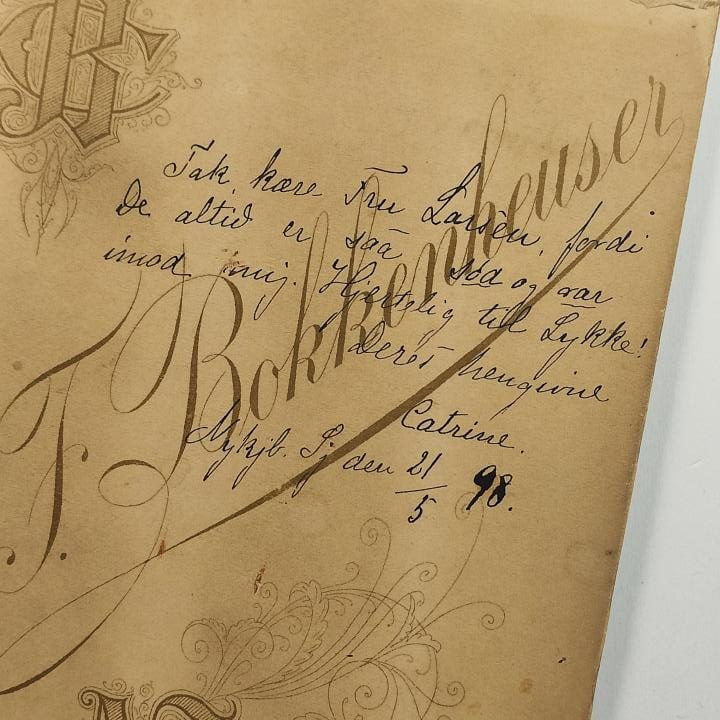 Tak, kære Fru Larsen, fordi
De altid er saa sød og var
imod mig. Hjertelig til Lykke!
Deres hengivne
Catrine.
Nykjb. Sj den 21/5 98.
F. Bokkenheuser